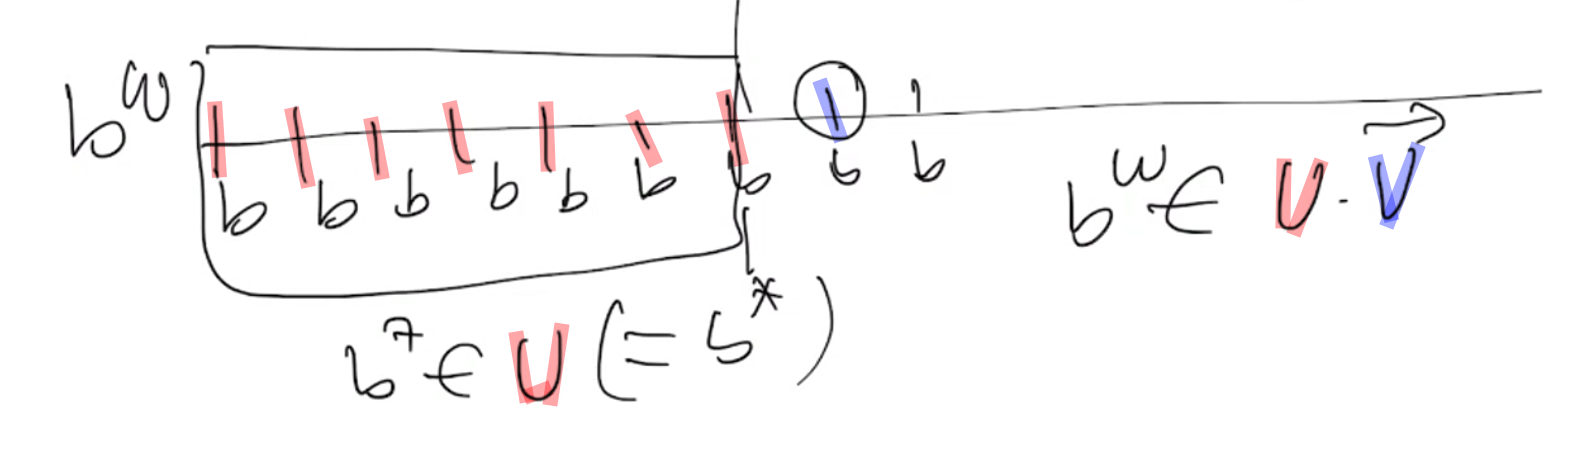 b^ω b b b b b b b b b
b^ω ∈ U · V
b^7 ∈ U (= b^*)